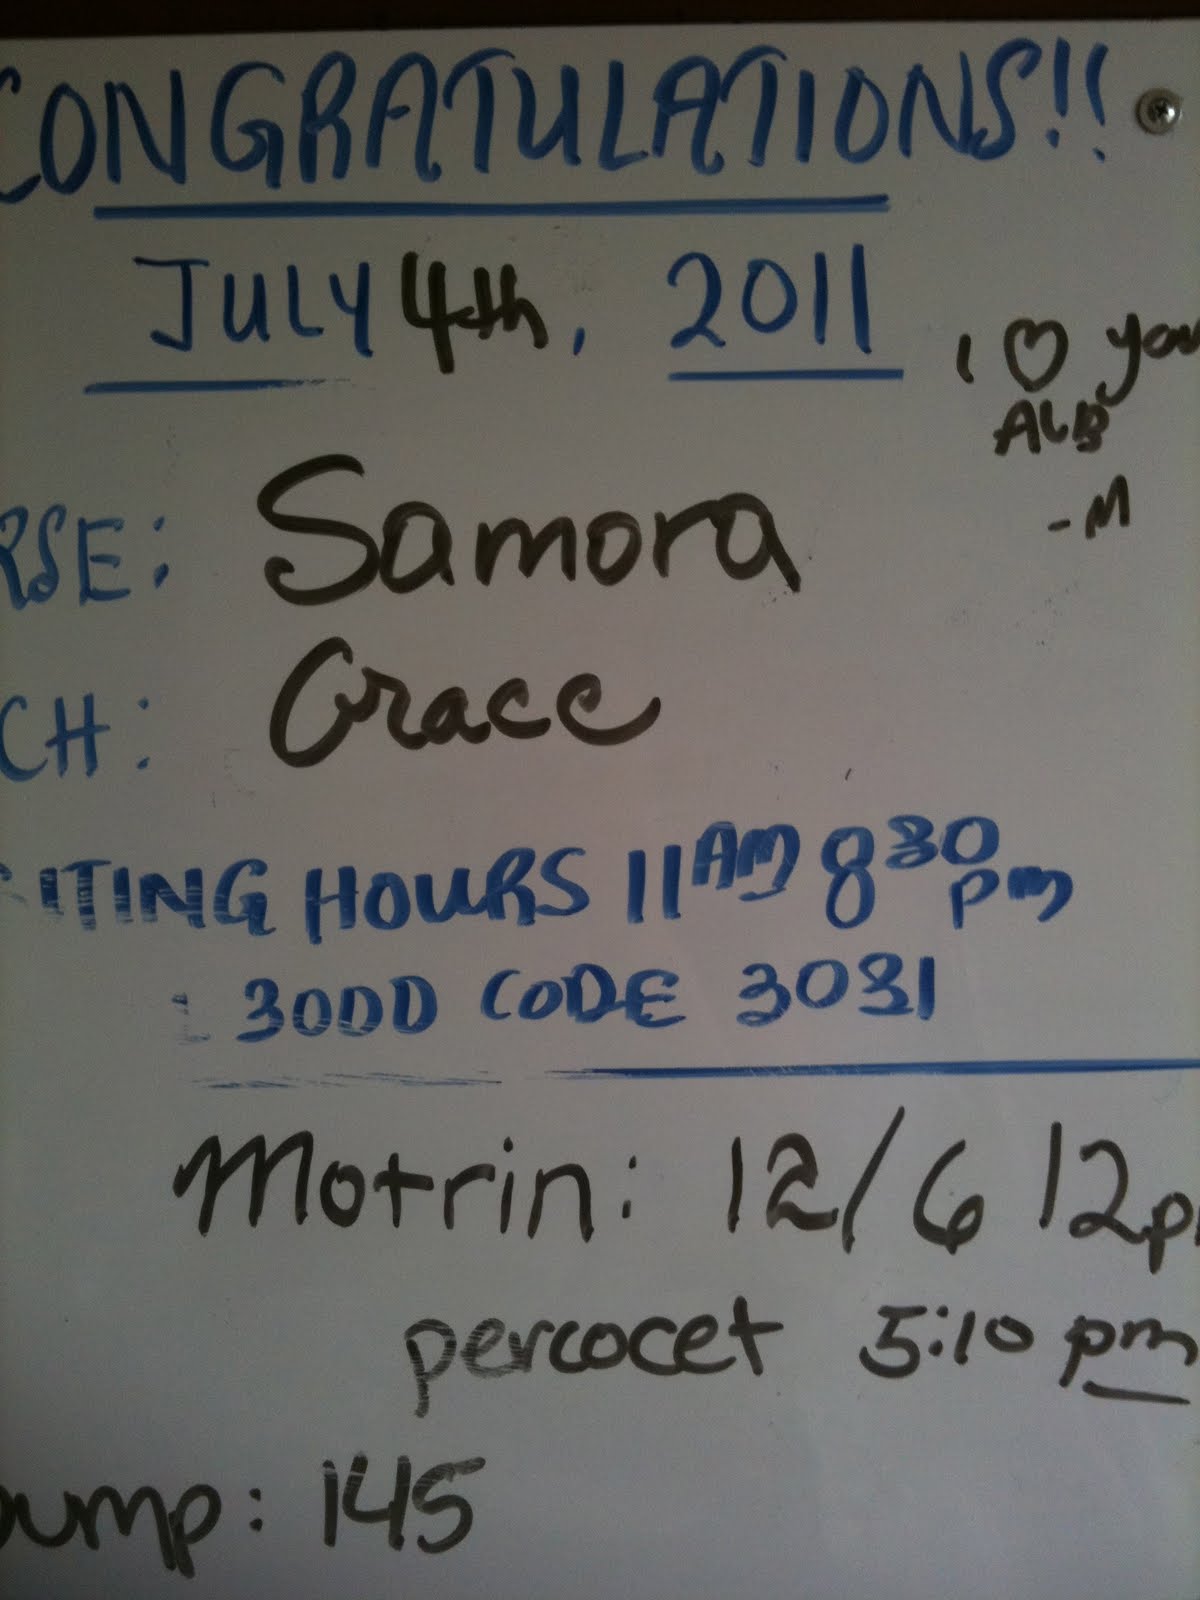 CONGRATULATIONS!!
JULY 4th, 2011
I ♡ you
ALB
-M
RSE: Samora
CH: Grace
SITING HOURS 11AM 830 pm
: 3000 CODE 3031
Motrin: 12/6 12p
percocet 5:10 pm
pump: 145